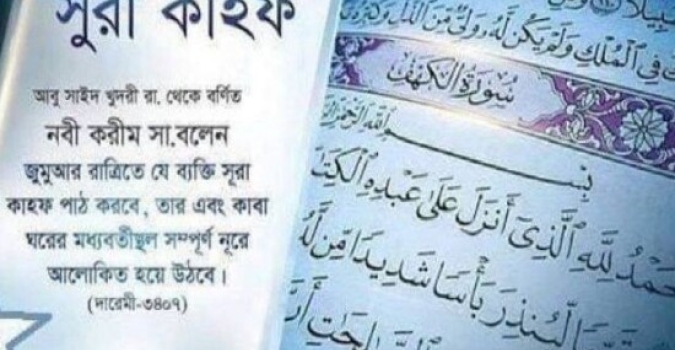 সুরা কাহফ
আবু সাইদ খুদরী রা. থেকে বর্ণিত
নবী করীম সা.বলেন
জুমুআর রাত্রিতে যে ব্যক্তি সূরা
কাহফ পাঠ করবে, তার এবং কাবা
ঘরের মধ্যবর্তীস্থল সম্পূর্ণ নূরে
আলোকিত হয়ে উঠবে।
(দারেমী-৩৪০৭)
فِي ٱلْمُلْكِ وَلَمْ يَكُن لَّهُۥ وَلِيٌّ مِّنَ ٱلذُّلِّ وَكَبِّرْهُ
سُورَةُ الكَهْفِ
بِسْمِ ٱللَّهِ ٱلرَّحْمَٰنِ
لِلَّهِ ٱلَّذِىٓ أَنزَلَ عَلَىٰ عَبْدِهِ
لِّيُنذِرَ بَأْسًا شَدِيدًا مِّن